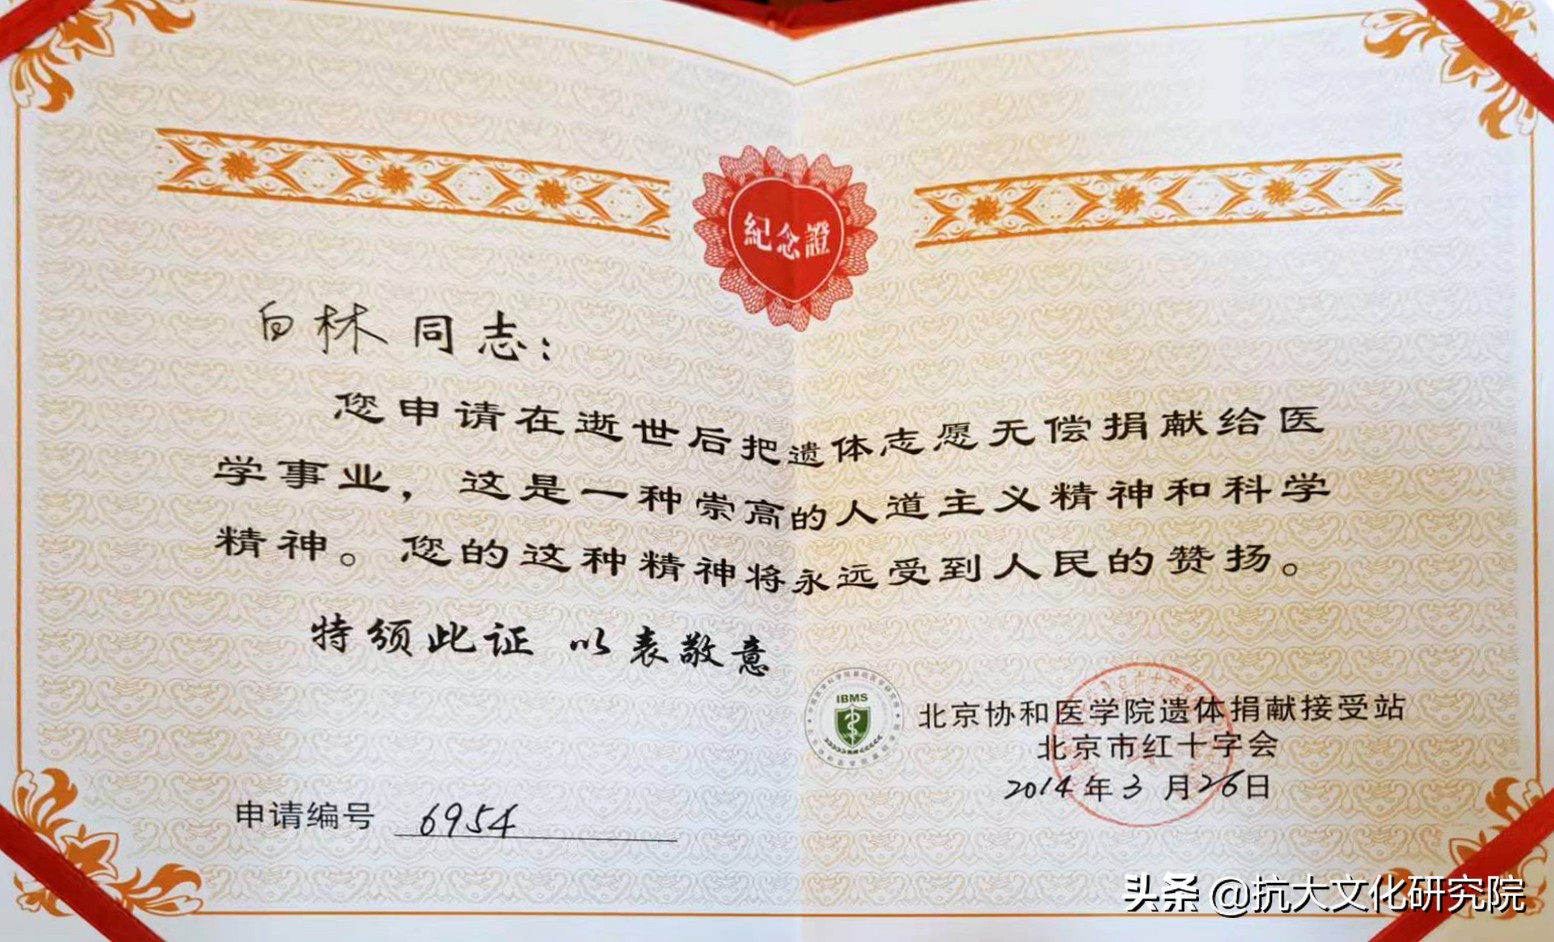 紀念證
白林同志：
您申请在逝世后把遗体志愿无偿捐献给医
学事业，这是一种崇高的人道主义精神和科学
精神。您的这种精神将永远受到人民的赞扬。
特颁此证 以表敬意
IBMS
北京协和医学院遗体捐献接受站
北京市红十字会
2014年3月26日
申请编号 6954
头条 @抗大文化研究院